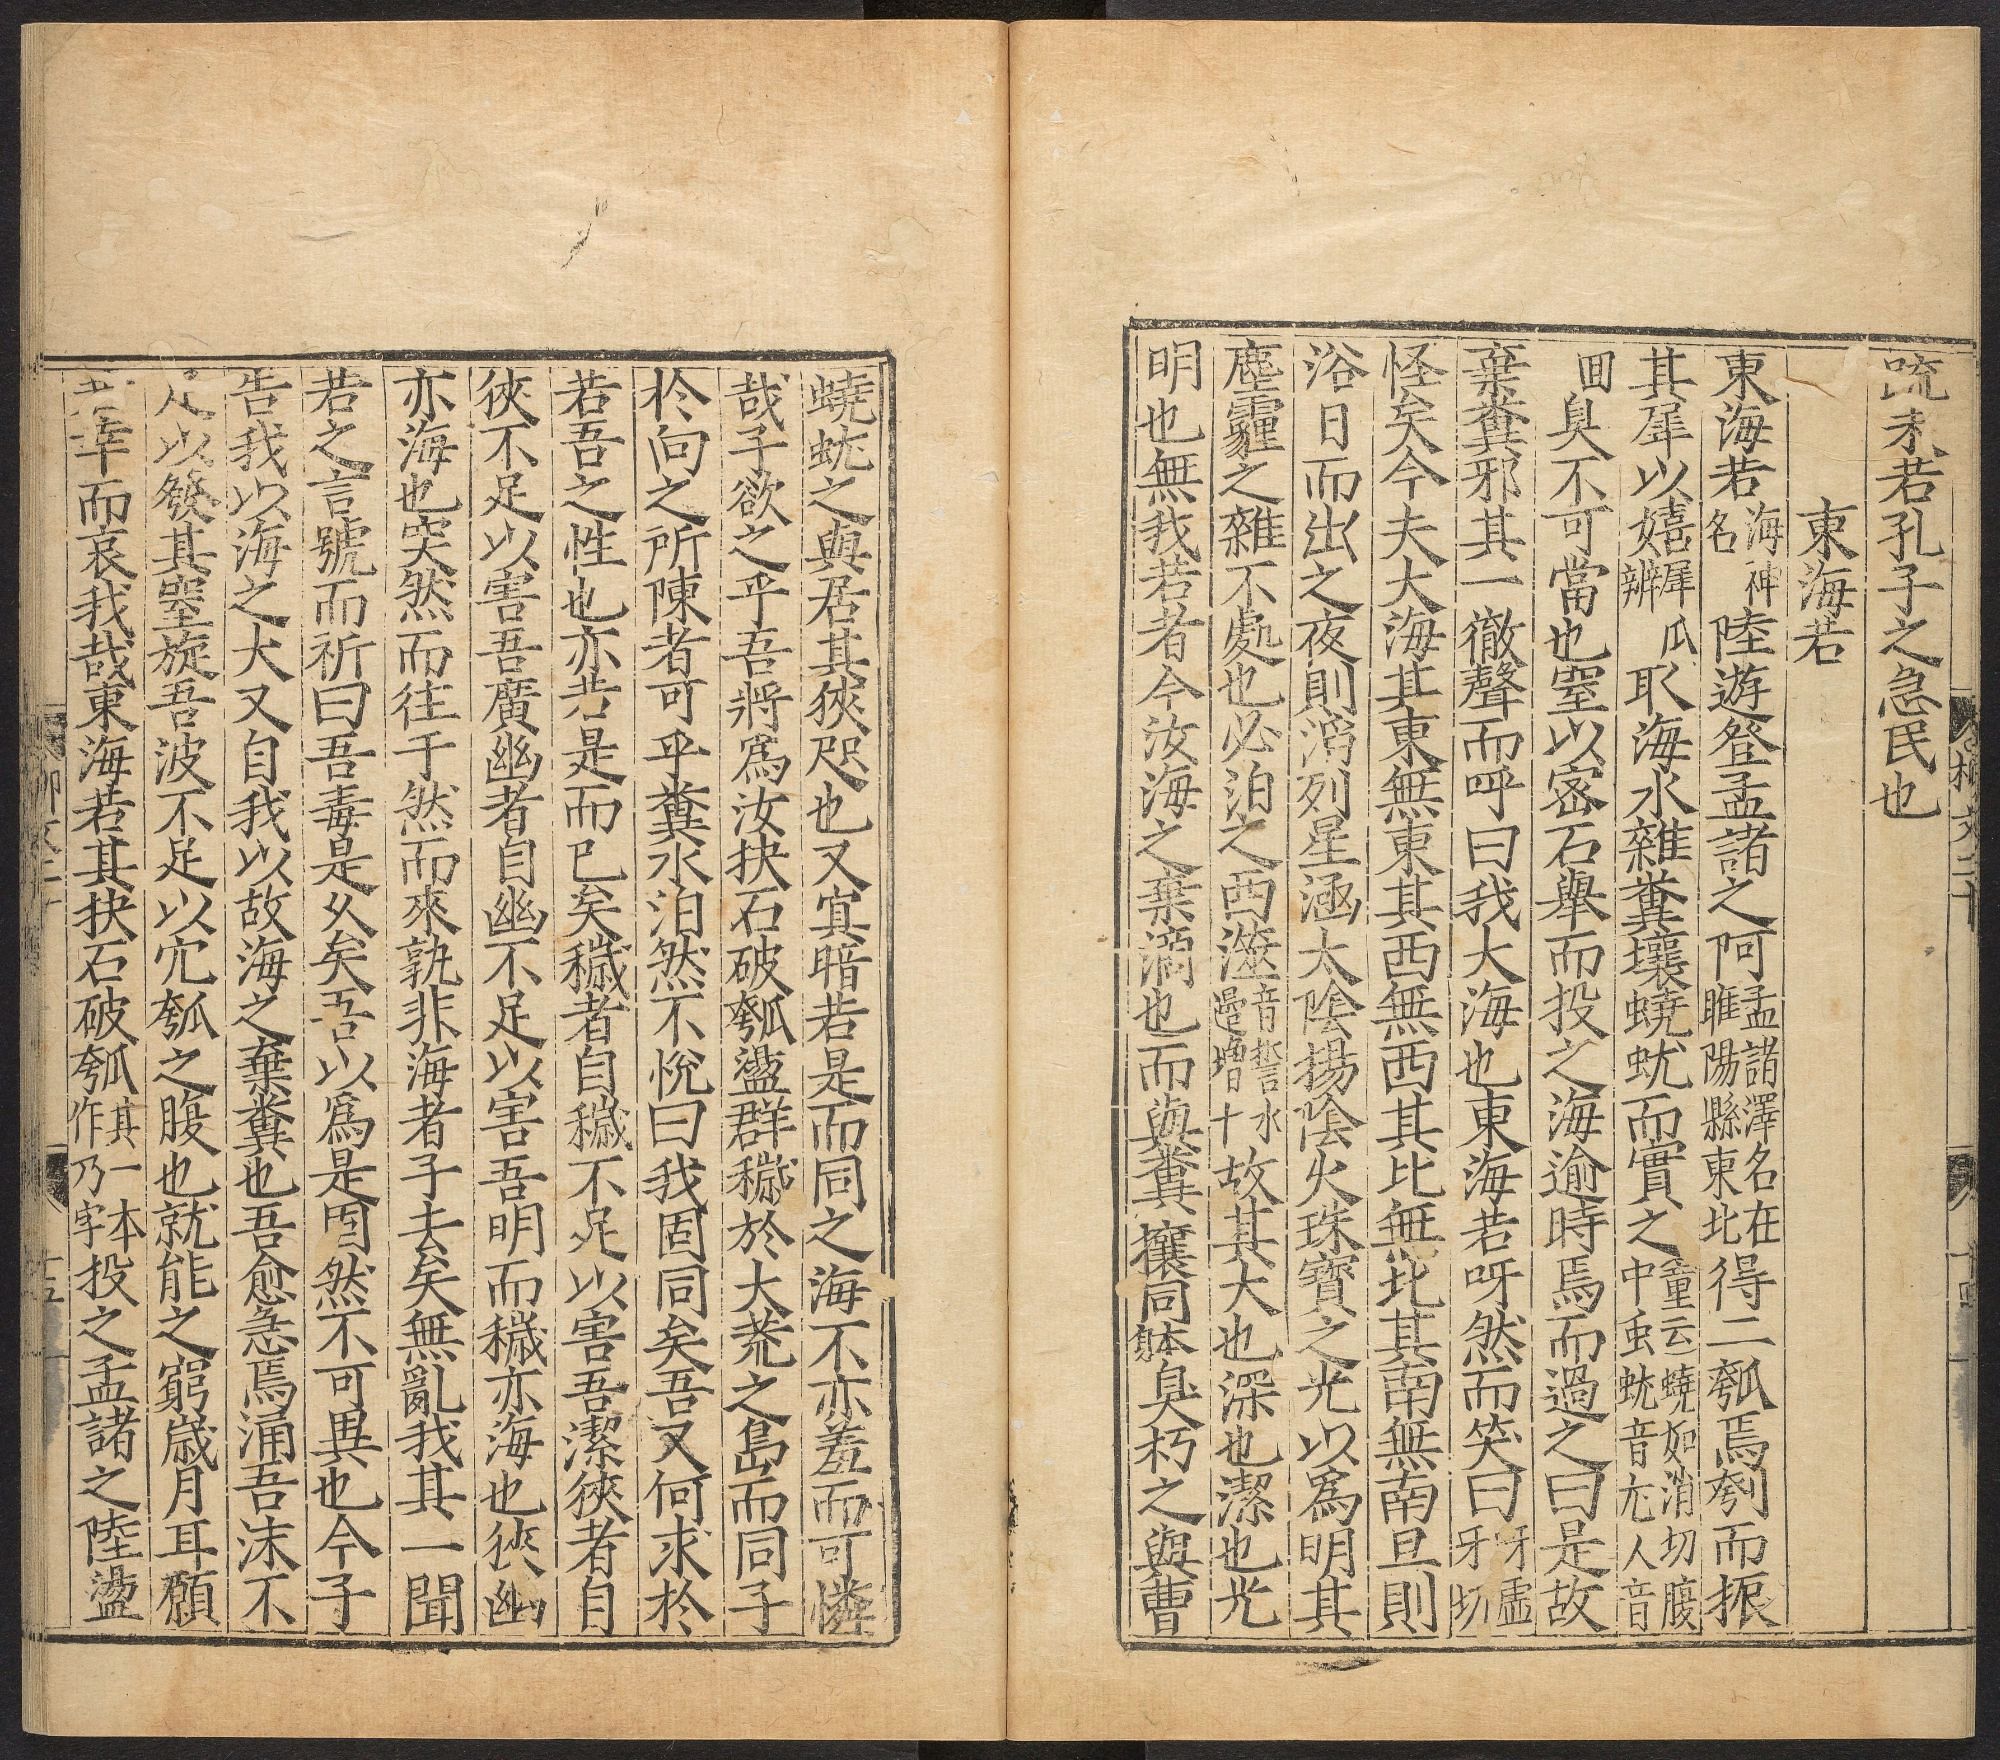 疏未若孔子之急民也
東海若
東海若海神名陸遊登孟諸之阿孟諸澤名在睢陽縣東北得二瓠焉刳而振
其犀以嬉犀瓜辨取海水雜糞壤蟯蚘而實之童云蟯如消切腹中虫蚘音尤人音
囬臭不可當也窒以密石舉而投之海逾時焉而過之曰是故
棄糞邪其一徹聲而呼曰我大海也東海若呀然而笑曰呀虛牙切
怪矣今夫大海其東無東其西無西其北無北其南無南旦則
浴日而出之夜則滔列星涵太陰揚陰火珠寶之光以爲明其
塵霾之雜不處也必泊之西澨音誓水邊增十故其大也深也潔也光
明也無我若者今汝海之棄滴也而與糞壤同體臭朽之與曹
蟯蚘之與居其狹咫也又冥暗若是而同之海不亦羞而可憐
哉子欲之乎吾將爲汝抉石破瓠盪群穢於大荒之島而同子
於向之所陳者可乎糞水泊然不悅曰我固同矣吾又何求於
若吾之性也亦若是而已矣穢者自穢不足以害吾潔狹者自
狹不足以害吾廣幽者自幽不足以害吾明而穢亦海也狹幽
亦海也突然而往于然而來孰非海者子去矣無亂我其一聞
若之言號而祈曰吾毒是久矣吾以爲是固然不可異也今子
告我以海之大又自我以故海之棄糞也吾愈急焉涌吾沫不
足以發其窒旋吾波不足以穴瓠之腹也就能之窮歲月耳願
若幸而哀我哉東海若其抉石破瓠其一本作乃字投之孟諸之陸盪
柳文二十
十五